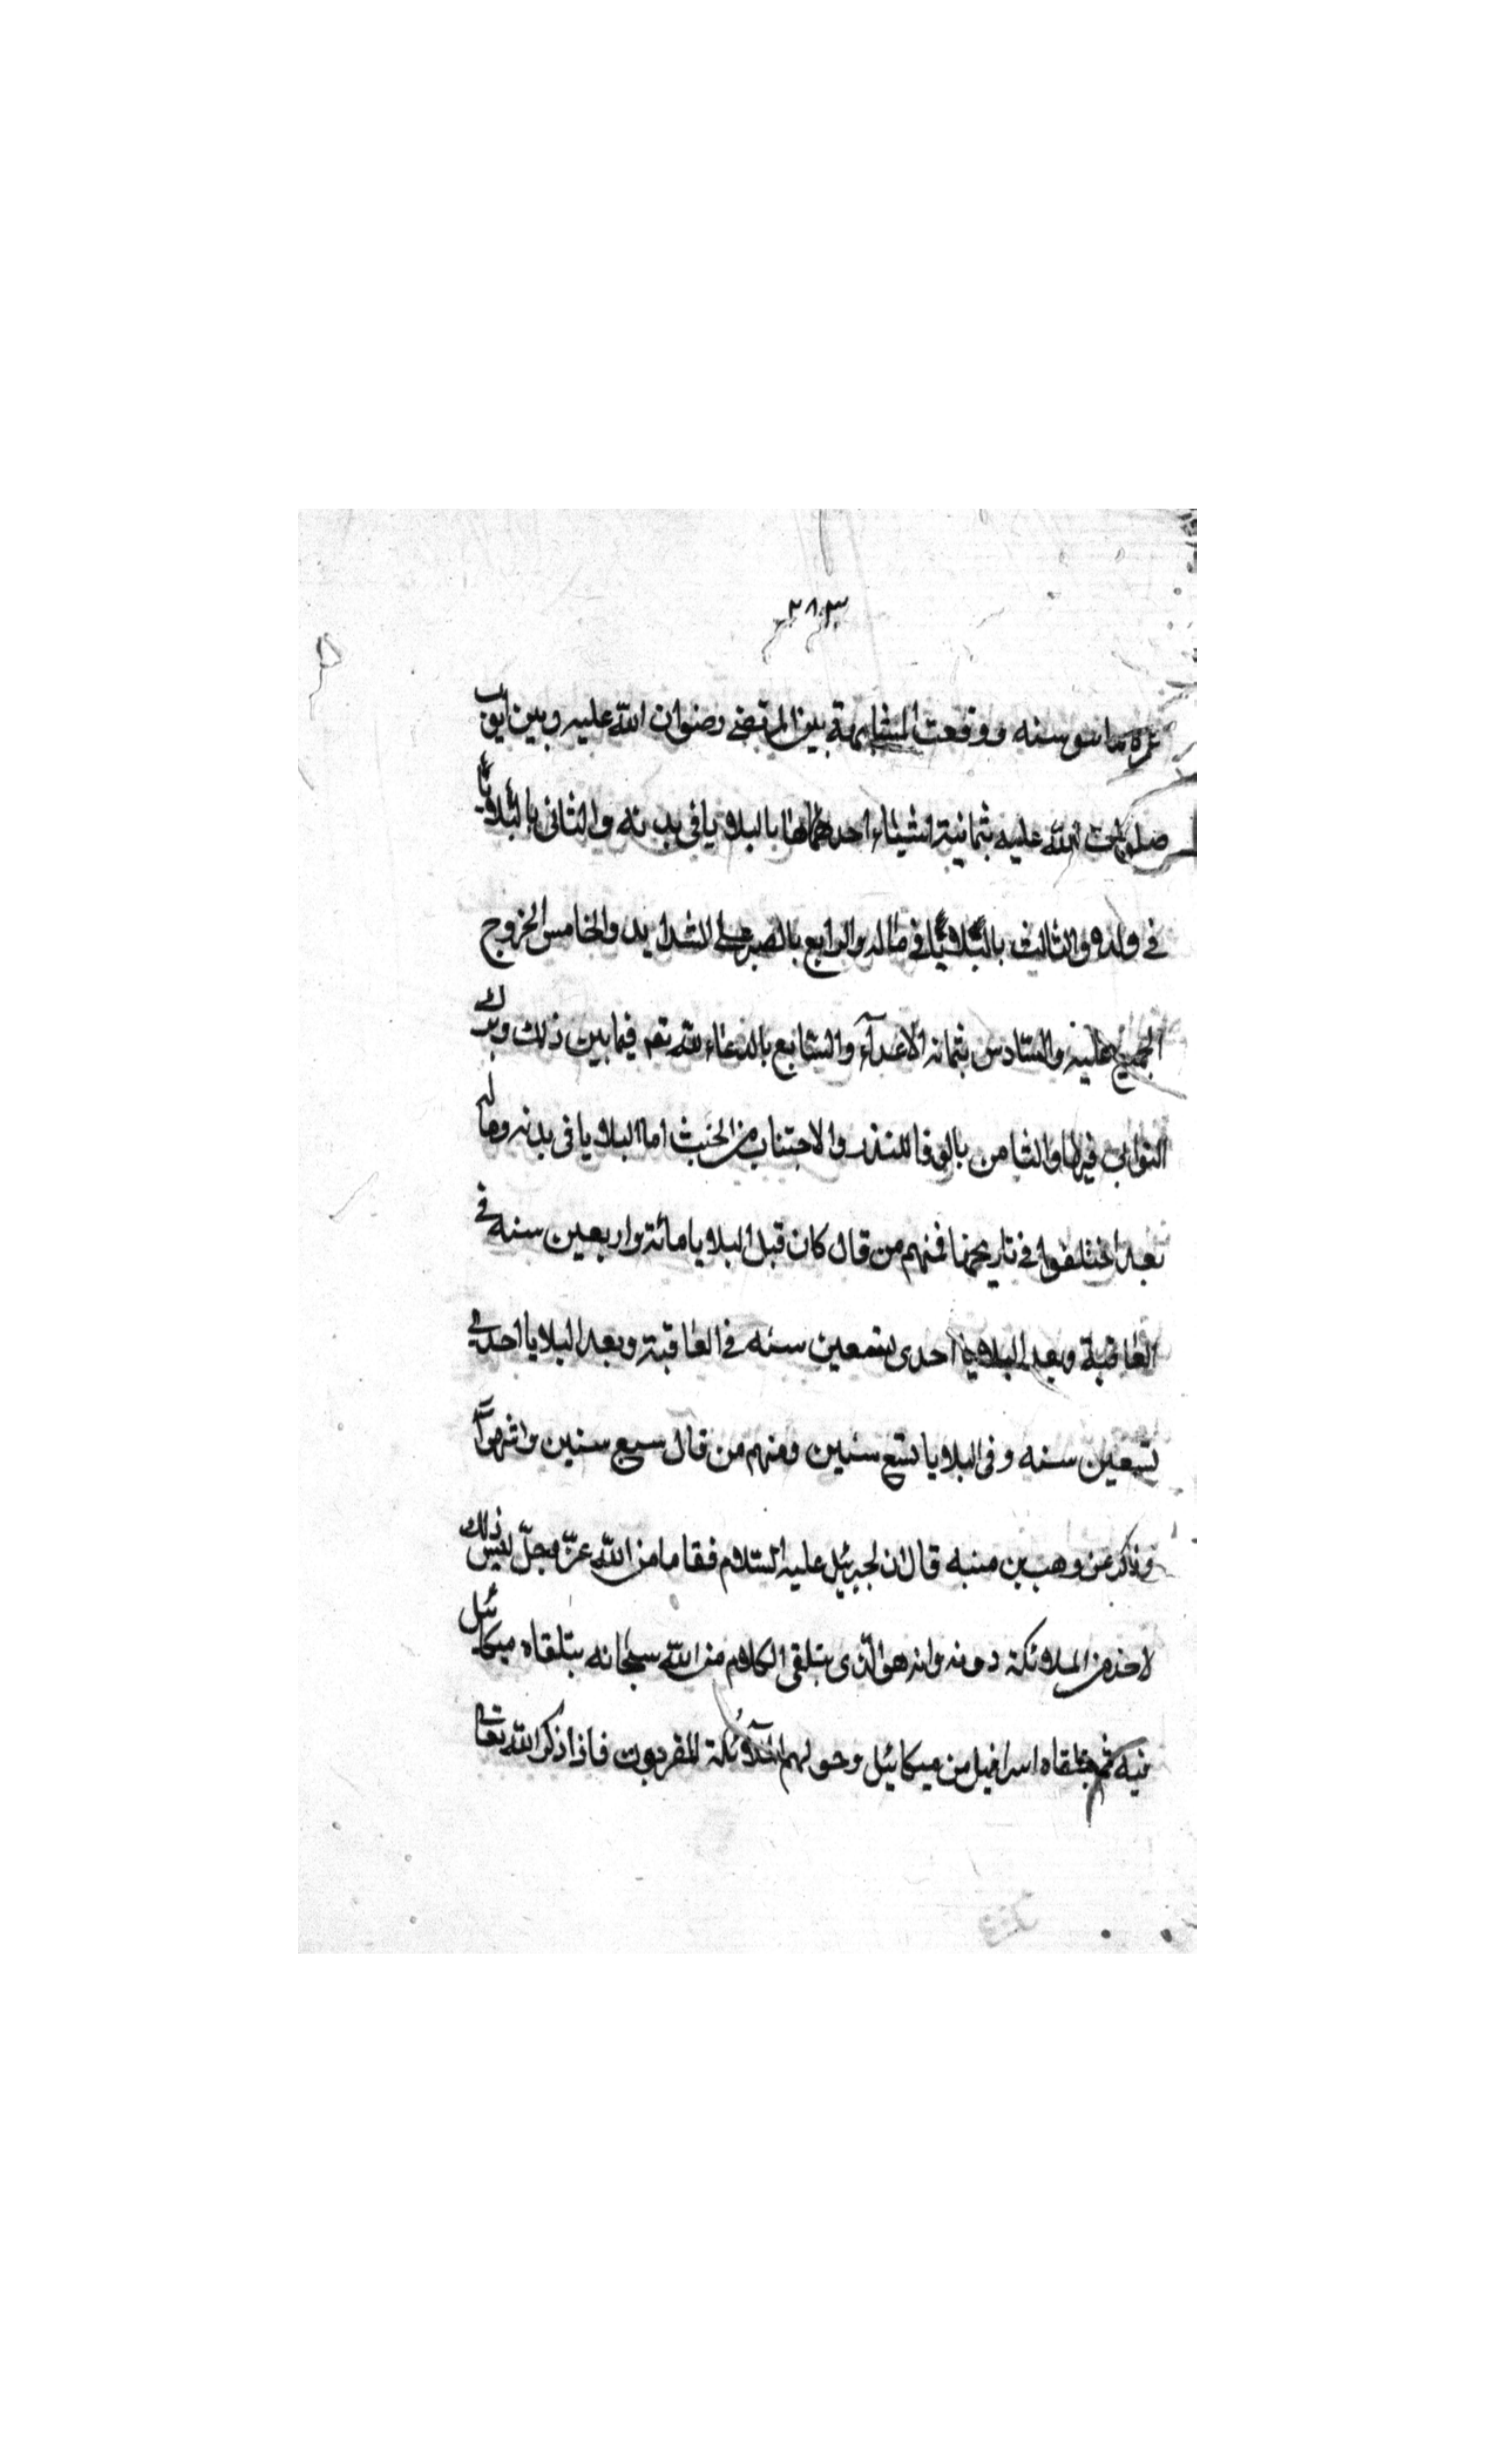 ٢٨٣
سنه ووقعت المشابهة بين المرتضى رضوان الله عليه وبين ايوب
صلوات الله عليه بثمانية اشياء احدها بالبلايا فى بدنه والثانى بالبلايا
فى ولده والثالث بالبلايا فى ماله والرابع بالصبر على الشدايد والخامس الخروج
الجميع عليه والسادس بشماتة الاعدآء والسابع بالدعاء لله تعـ فيما بين ذلك وترك
التوانى فيها والثامن بالوفا للنذر والاجتناب من الحنث اما البلايا فى بدنه وماله
بعد اختلفوا فى تاريخها فمنهم من قال كان قبل البلايا مائة واربعين سنه فى
العافية وبعد البلايا احدى تسعين سنه فى العاقبة وبعد البلايا احدى
تسعين سنه وفى البلايا تسع سنين ومنهم من قال سبع سنين واشهرا
وذكر عن وهب بن منبه قال ان لجبرئيل عليه السلام مقاما من الله عزّ وجلّ ليس ذلك
لاحد من الملائكة دونه وانه هو الّذى يتلقى الكلام من الله سبحانه يتلقاه ميكائيل
منه ثم يتلقاه اسرافيل من ميكائيل وحولهم الملآئكة المقربون فاذا ذكر الله تعالى